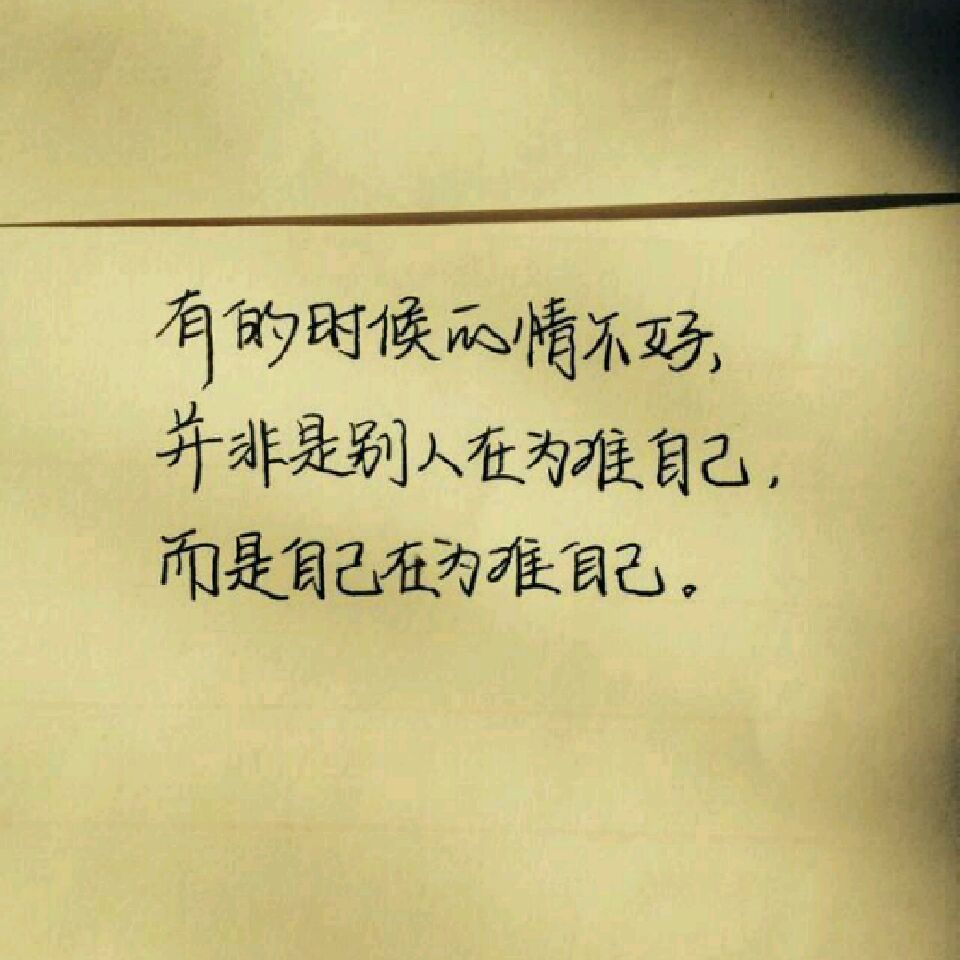 有的时候心情不好,
并非是别人在为难自己,
而是自己在为难自己。